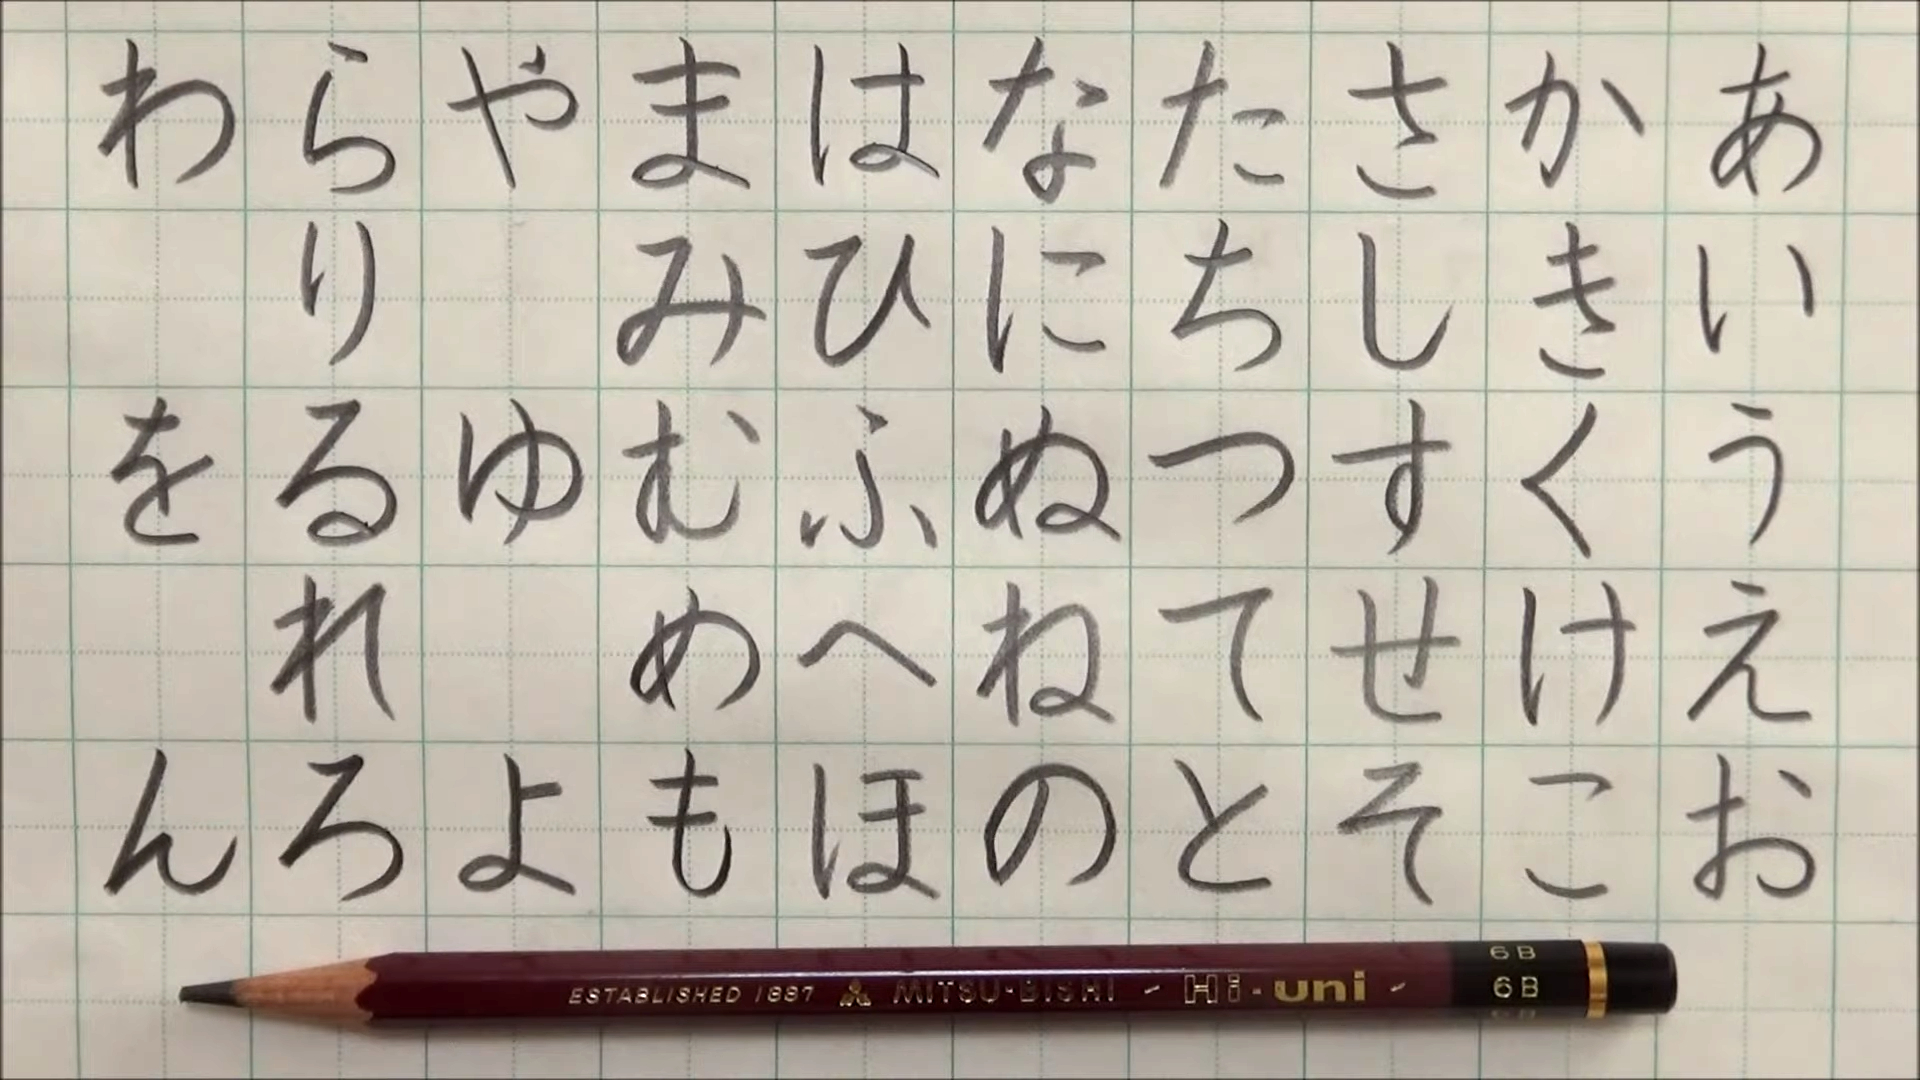 あいうえお
かきくけこ
さしすせそ
たちつてと
なにぬねの
はひふへほ
まみむめも
やゆよ
らりるれろ
わをん
ESTABLISHED 1887 MITSU-BISHI - Hi-uni -
6B
6B
6B